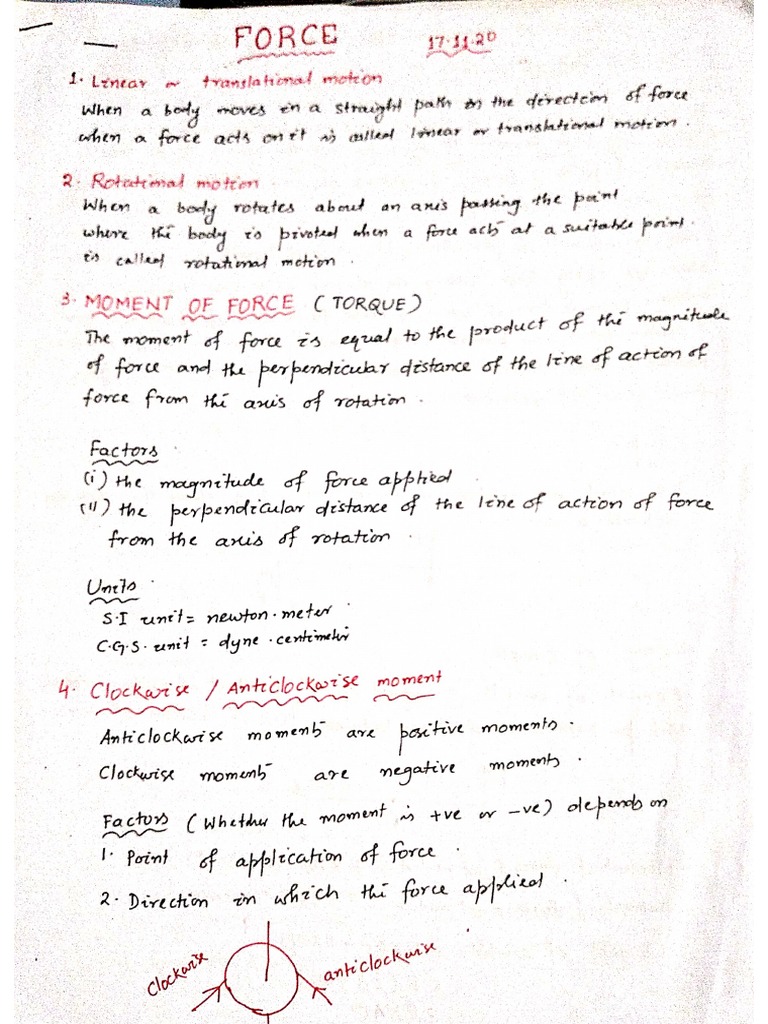 FORCE 17.11.20
1. Linear or translational motion
When a body moves in a straight path in the direction of force
when a force acts on it is called linear or translational motion.
2. Rotational motion
When a body rotates about an axis passing the point
where the body is pivoted when a force acts at a suitable point.
is called rotational motion.
3. MOMENT OF FORCE (TORQUE)
The moment of force is equal to the product of the magnitude
of force and the perpendicular distance of the line of action of
force from the axis of rotation.
Factors
(i) the magnitude of force applied
(ii) the perpendicular distance of the line of action of force
from the axis of rotation.
Units.
S.I unit = newton.meter
C.G.S. unit = dyne.centimeter
4. Clockwise / Anticlockwise moment
Anticlockwise moments are positive moments.
Clockwise moments are negative moments.
Factors (Whether the moment is +ve or -ve) depends on
1. Point of application of force.
2. Direction in which the force applied.
clockwise anticlockwise